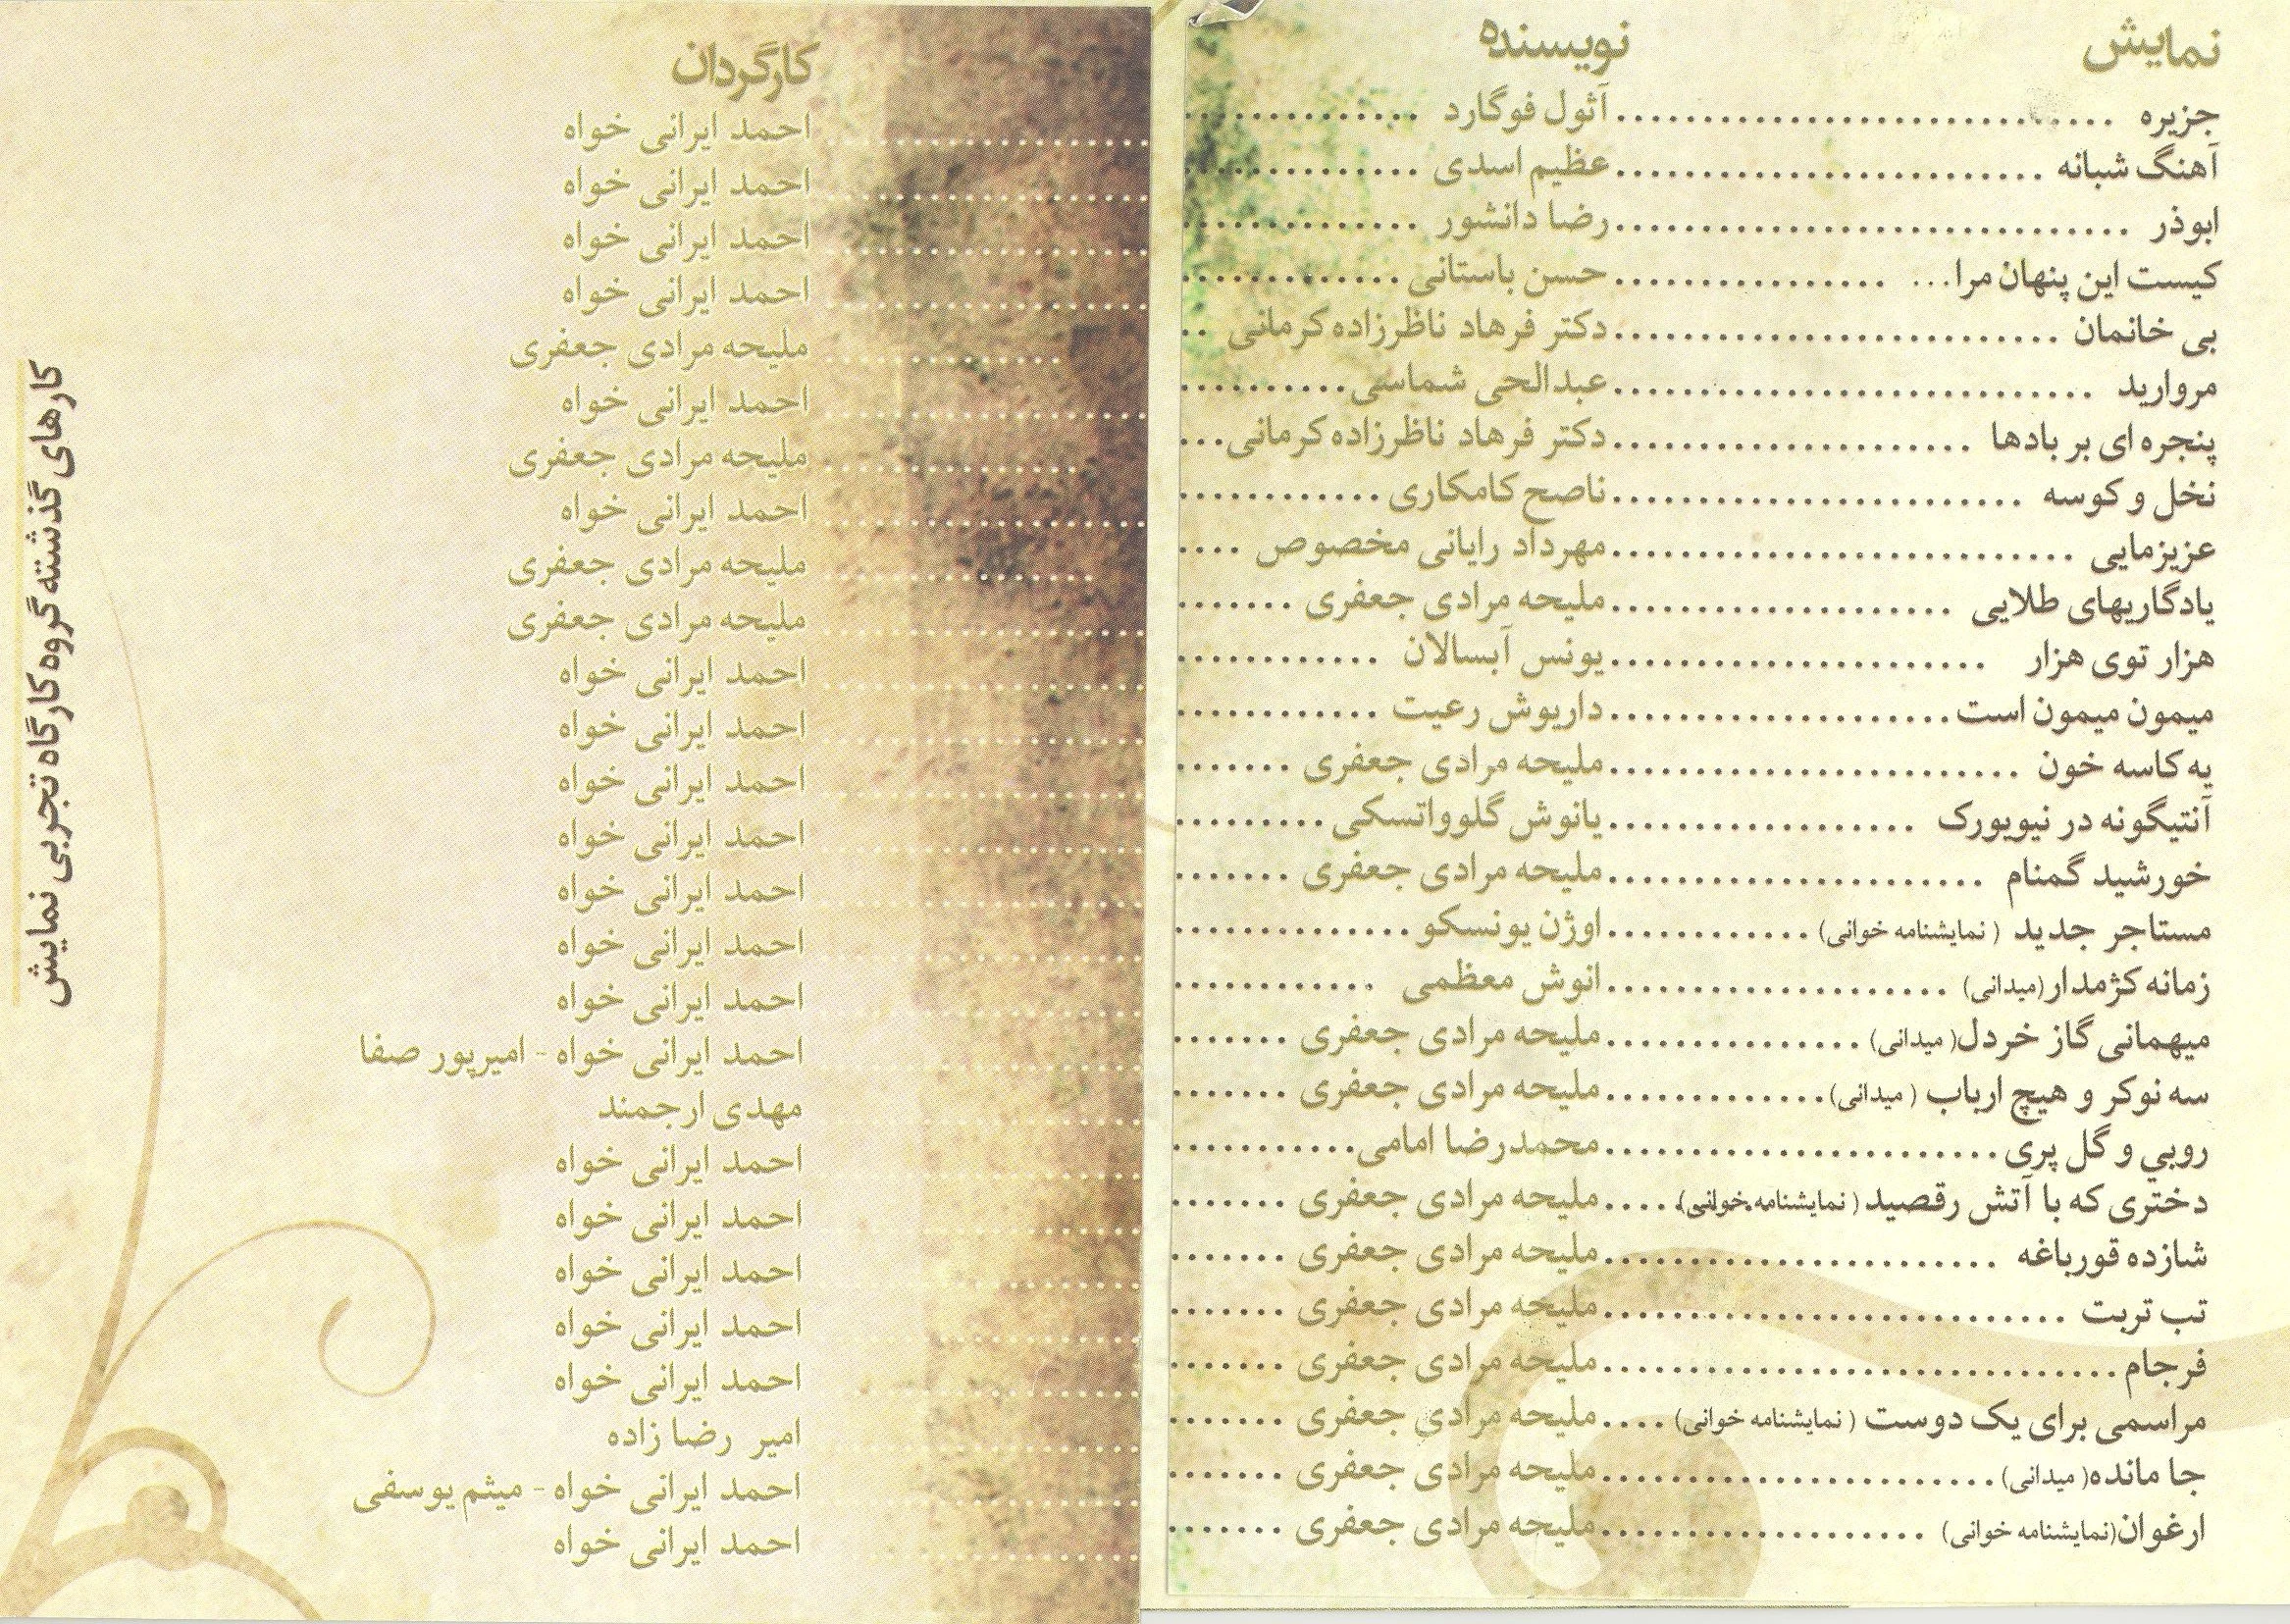 نمایش نویسنده کارگردان
جزیره ............................. آثول فوگارد .............. احمد ایرانی خواه
آهنگ شبانه ......................... عظیم اسدی .............. احمد ایرانی خواه
ابوذر .............................. رضا دانشور .............. احمد ایرانی خواه
کیست این پنهان مرا... ................ حسن باستانی ............. احمد ایرانی خواه
بی خانمان .......................... دکتر فرهاد ناظرزاده کرمانی .. ملیحه مرادی جعفری
مروارید ............................ عبدالحی شماسی .......... احمد ایرانی خواه
پنجره ای بر بادها ..................... دکتر فرهاد ناظرزاده کرمانی... ملیحه مرادی جعفری
نخل و کوسه ........................ ناصح کامکاری ............ احمد ایرانی خواه
عزیزمایی ........................... مهرداد رایانی مخصوص .... ملیحه مرادی جعفری
یادگاریهای طلایی .................... ملیحه مرادی جعفری ....... ملیحه مرادی جعفری
هزار توی هزار ...................... یونس آبسالان ............ احمد ایرانی خواه
میمون میمون است.................... داریوش رعیت ............ احمد ایرانی خواه
یه کاسه خون ........................ ملیحه مرادی جعفری ....... احمد ایرانی خواه
آنتیگونه در نیویورک .................. یانوش گلوواتسکی ......... احمد ایرانی خواه
خورشید گمنام ...................... ملیحه مرادی جعفری ....... احمد ایرانی خواه
مستاجر جدید ( نمایشنامه خوانی) ............ اوژن یونسکو .............. احمد ایرانی خواه
زمانه کژمدار(میدانی) .................... انوش معظمی ............ احمد ایرانی خواه
میهمانی گاز خردل( میدانی) ............... ملیحه مرادی جعفری ....... احمد ایرانی خواه - امیرپور صفا
سه نوکر و هیچ ارباب ( میدانی)............. ملیحه مرادی جعفری ....... مهدی ارجمند
روبي و گل پری....................... محمدرضا امامی........... احمد ایرانی خواه
دختری که با آتش رقصید ( نمایشنامه خوانی)..... ملیحه مرادی جعفری ....... احمد ایرانی خواه
شازده قورباغه ....................... ملیحه مرادی جعفری ....... احمد ایرانی خواه
تب تربت ........................... ملیحه مرادی جعفری ....... احمد ایرانی خواه
فرجام.............................. ملیحه مرادی جعفری ....... احمد ایرانی خواه
مراسمی برای یک دوست ( نمایشنامه خوانی) .... ملیحه مرادی جعفری ....... امیر رضا زاده
جا مانده( میدانی)....................... ملیحه مرادی جعفری ....... احمد ایرانی خواه - میثم یوسفی
ارغوان(نمایشنامه خوانی) ................... ملیحه مرادی جعفری ....... احمد ایرانی خواه
کارهای گذشته گروه کارگاه تجربی نمایش